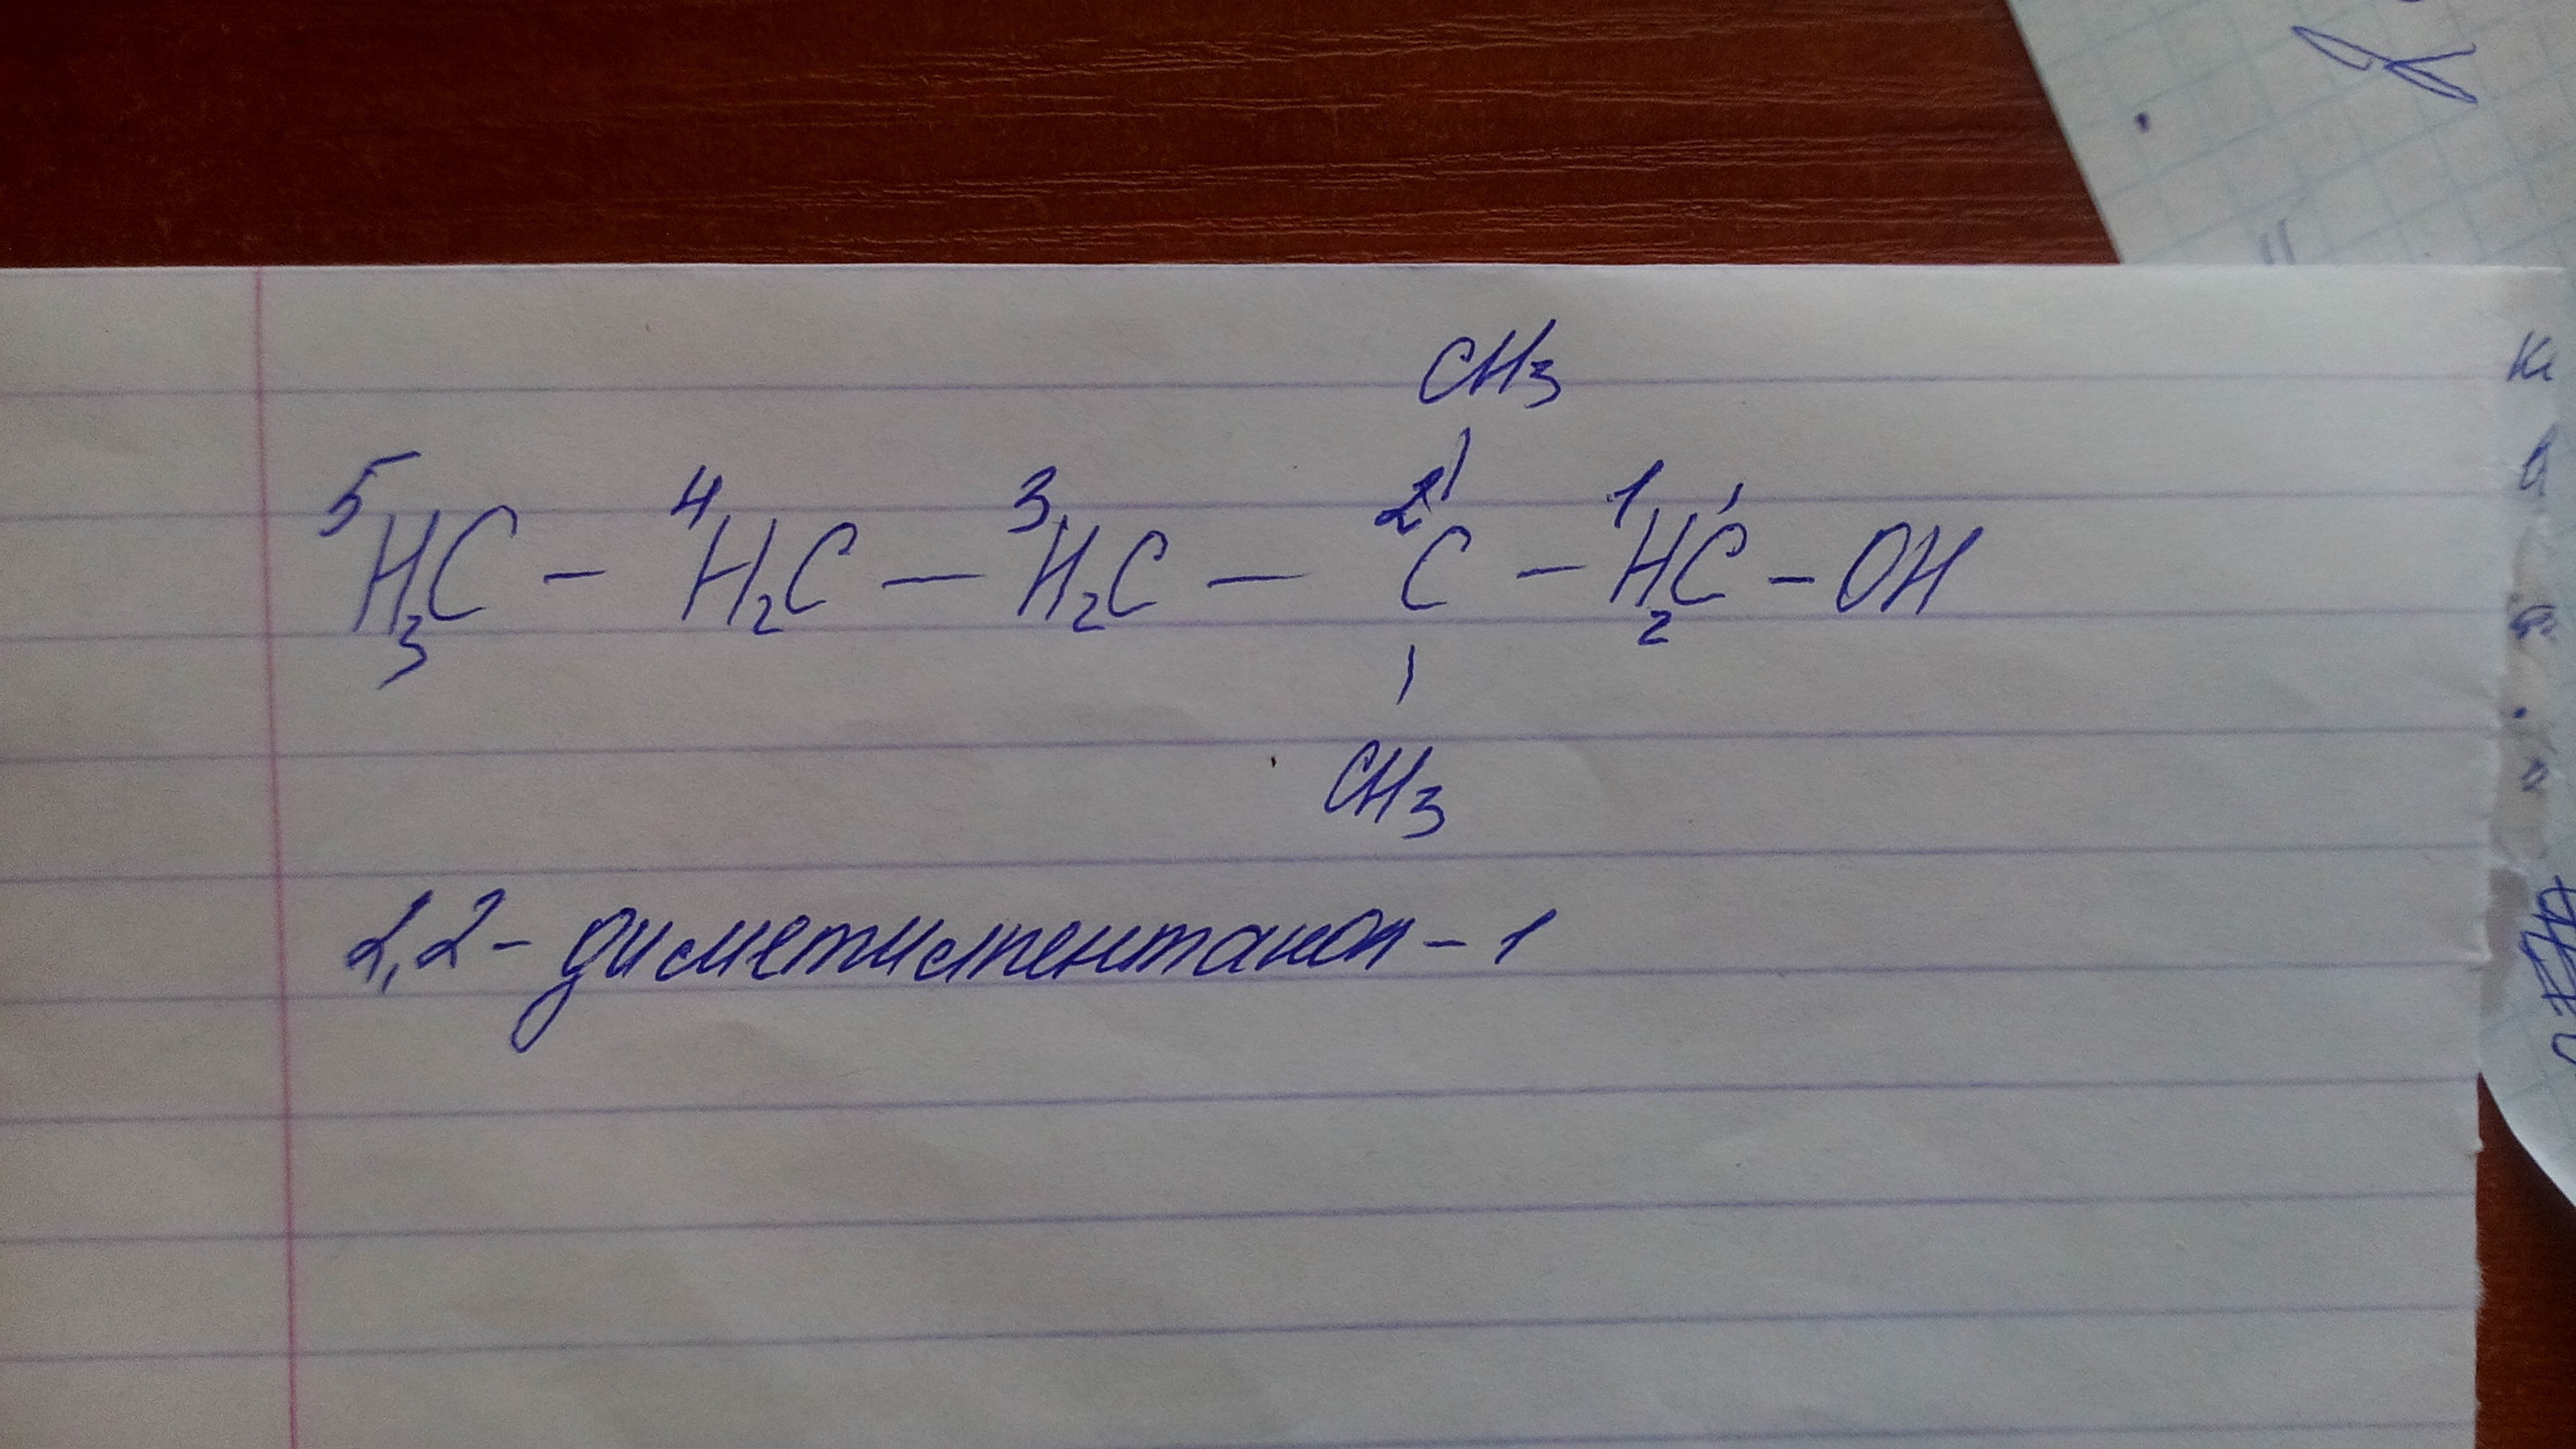 CH₃
5 4 3 2 1
H₃C – H₂C — H₂C — C – H₂C – OH
CH₃
2,2 - диметилпентанол – 1